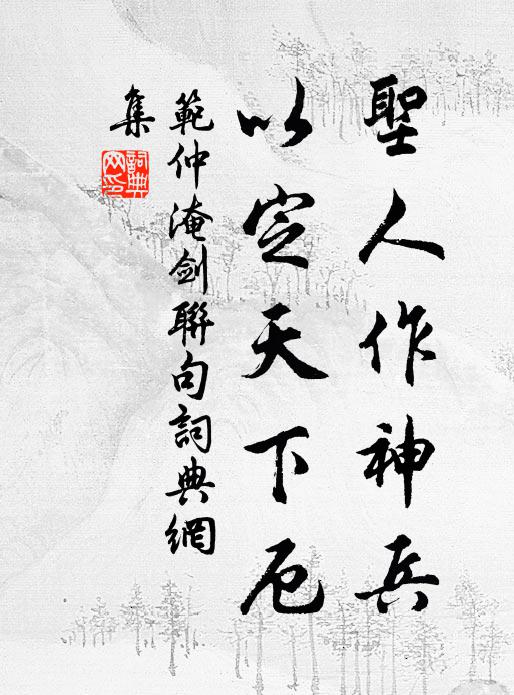 聖人作神兵
以定天下厄
範仲淹劍聯句詞典網
集
詞典網印